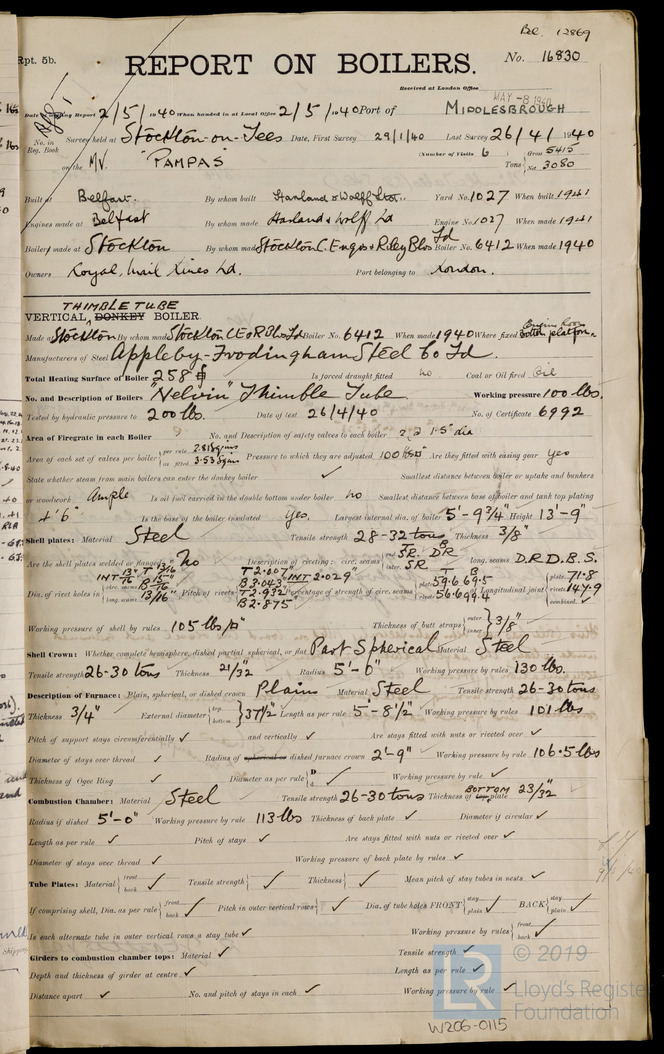 Bel. 12869
Rpt. 5b.
REPORT ON BOILERS.
No. 16830
Received at London Office
MAY -8 1940
Date of writing Report 2/5/1940 When handed in at Local Office 2/5/1940 Port of MIDDLESBROUGH
No. in Reg. Book
Survey held at Stockton-on-Tees Date, First Survey 29/1/40 Last Survey 26/4/1940
on the M.V. "PAMPAS" (Number of Visits 6) Tons Gross 5415 Net 3080
Built at Belfast. By whom built Harland & Wolff Ltd. Yard No. 1027 When built 1941
Engines made at Belfast By whom made Harland & Wolff Ld Engine No. 1027 When made 1941
Boilers made at Stockton By whom made Stockton C. Engrs & Riley Blrs Ld Boiler No. 6412 When made 1940
Owners Royal Mail Lines Ld. Port belonging to London.
THIMBLE TUBE
VERTICAL DONKEY BOILER.
Made at Stockton By whom made Stockton CE & RB Ld Boiler No. 6412 When made 1940 Where fixed Engine Room bottom platform
Manufacturers of Steel Appleby-Frodingham Steel Co Ld.
Total Heating Surface of Boiler 258 Is forced draught fitted no Coal or Oil fired Oil
No. and Description of Boilers Thimble Tube Working pressure 100 lbs.
Tested by hydraulic pressure to 200 lbs. Date of test 26/4/40 No. of Certificate 6992
Area of Firegrate in each Boiler No. and Description of safety valves to each boiler 2 1.5" dia
Area of each set of valves per boiler per rule 2.81 as fitted 3.53 Pressure to which they are adjusted 100 lbs Are they fitted with easing gear Yes
State whether steam from main boilers can enter the donkey boiler ✓ Smallest distance between boiler or uptake and bunkers
or woodwork Ample Is oil fuel carried in the double bottom under boiler no Smallest distance between base of boiler and tank top plating
4'6" Is the base of the boiler insulated Yes. Largest internal dia. of boiler 5'-9¾" Height 13'-9"
Shell plates: Material Steel Tensile strength 28-32 tons Thickness 3/8"
Are the shell plates welded or flanged No Description of riveting: circ. seams SR. DR SR long. seams D.R.D.B.S.
Dia. of rivet holes in circ. seams long. seams 13/16" Pitch of rivets T 2.007" INT 2.029 B 3.043 T 2.932" B 2.875" Percentage of strength of circ. seams plate 59.6 69.5 rivets Longitudinal joint plate 71.8 rivets combined ✓
Working pressure of shell by rules 105 lbs Thickness of butt straps outer inner 3/8"
Shell Crown: Whether complete hemisphere, dished partial spherical, or flat Part Spherical Material Steel
Tensile strength 26-30 tons Thickness 21/32 Radius 5'-0" Working pressure by rules 130 lbs.
Description of Furnace: Plain, spherical, or dished crown Plain Material Steel Tensile strength 26-30 tons
Thickness 3/4" External diameter top bottom 37½" Length as per rule 5'-8½" Working pressure by rules 101 lbs
Pitch of support stays circumferentially ✓ and vertically ✓ Are stays fitted with nuts or riveted over ✓
Diameter of stays over thread ✓ Radius of spherical or dished furnace crown 2'-9" Working pressure by rule 106.5 lbs
Thickness of Ogee Ring ✓ Diameter as per rule D d ✓ Working pressure by rule ✓
Combustion Chamber: Material Steel Tensile strength 26-30 tons Thickness of top BOTTOM plate 23/32"
Radius if dished 5'-0" Working pressure by rule 113 lbs Thickness of back plate ✓ Diameter if circular ✓
Length as per rule ✓ Pitch of stays ✓ Are stays fitted with nuts or riveted over ✓
Diameter of stays over thread ✓ Working pressure of back plate by rules ✓
Tube Plates: Material front back ✓ Tensile strength ✓ Thickness ✓ Mean pitch of stay tubes in nests ✓
If comprising shell, Dia. as per rule front back ✓ Pitch in outer vertical rows ✓ Dia. of tube holes FRONT stay plain ✓ BACK stay plain ✓
Is each alternate tube in outer vertical rows a stay tube ✓ Working pressure by rules front back ✓
Girders to combustion chamber tops: Material ✓ Tensile strength ✓
Depth and thickness of girder at centre ✓ Length as per rule ✓
Distance apart ✓ No. and pitch of stays in each ✓ Working pressure by rule ✓
LR
© 2019
Lloyd's Register
Foundation
W206-0115